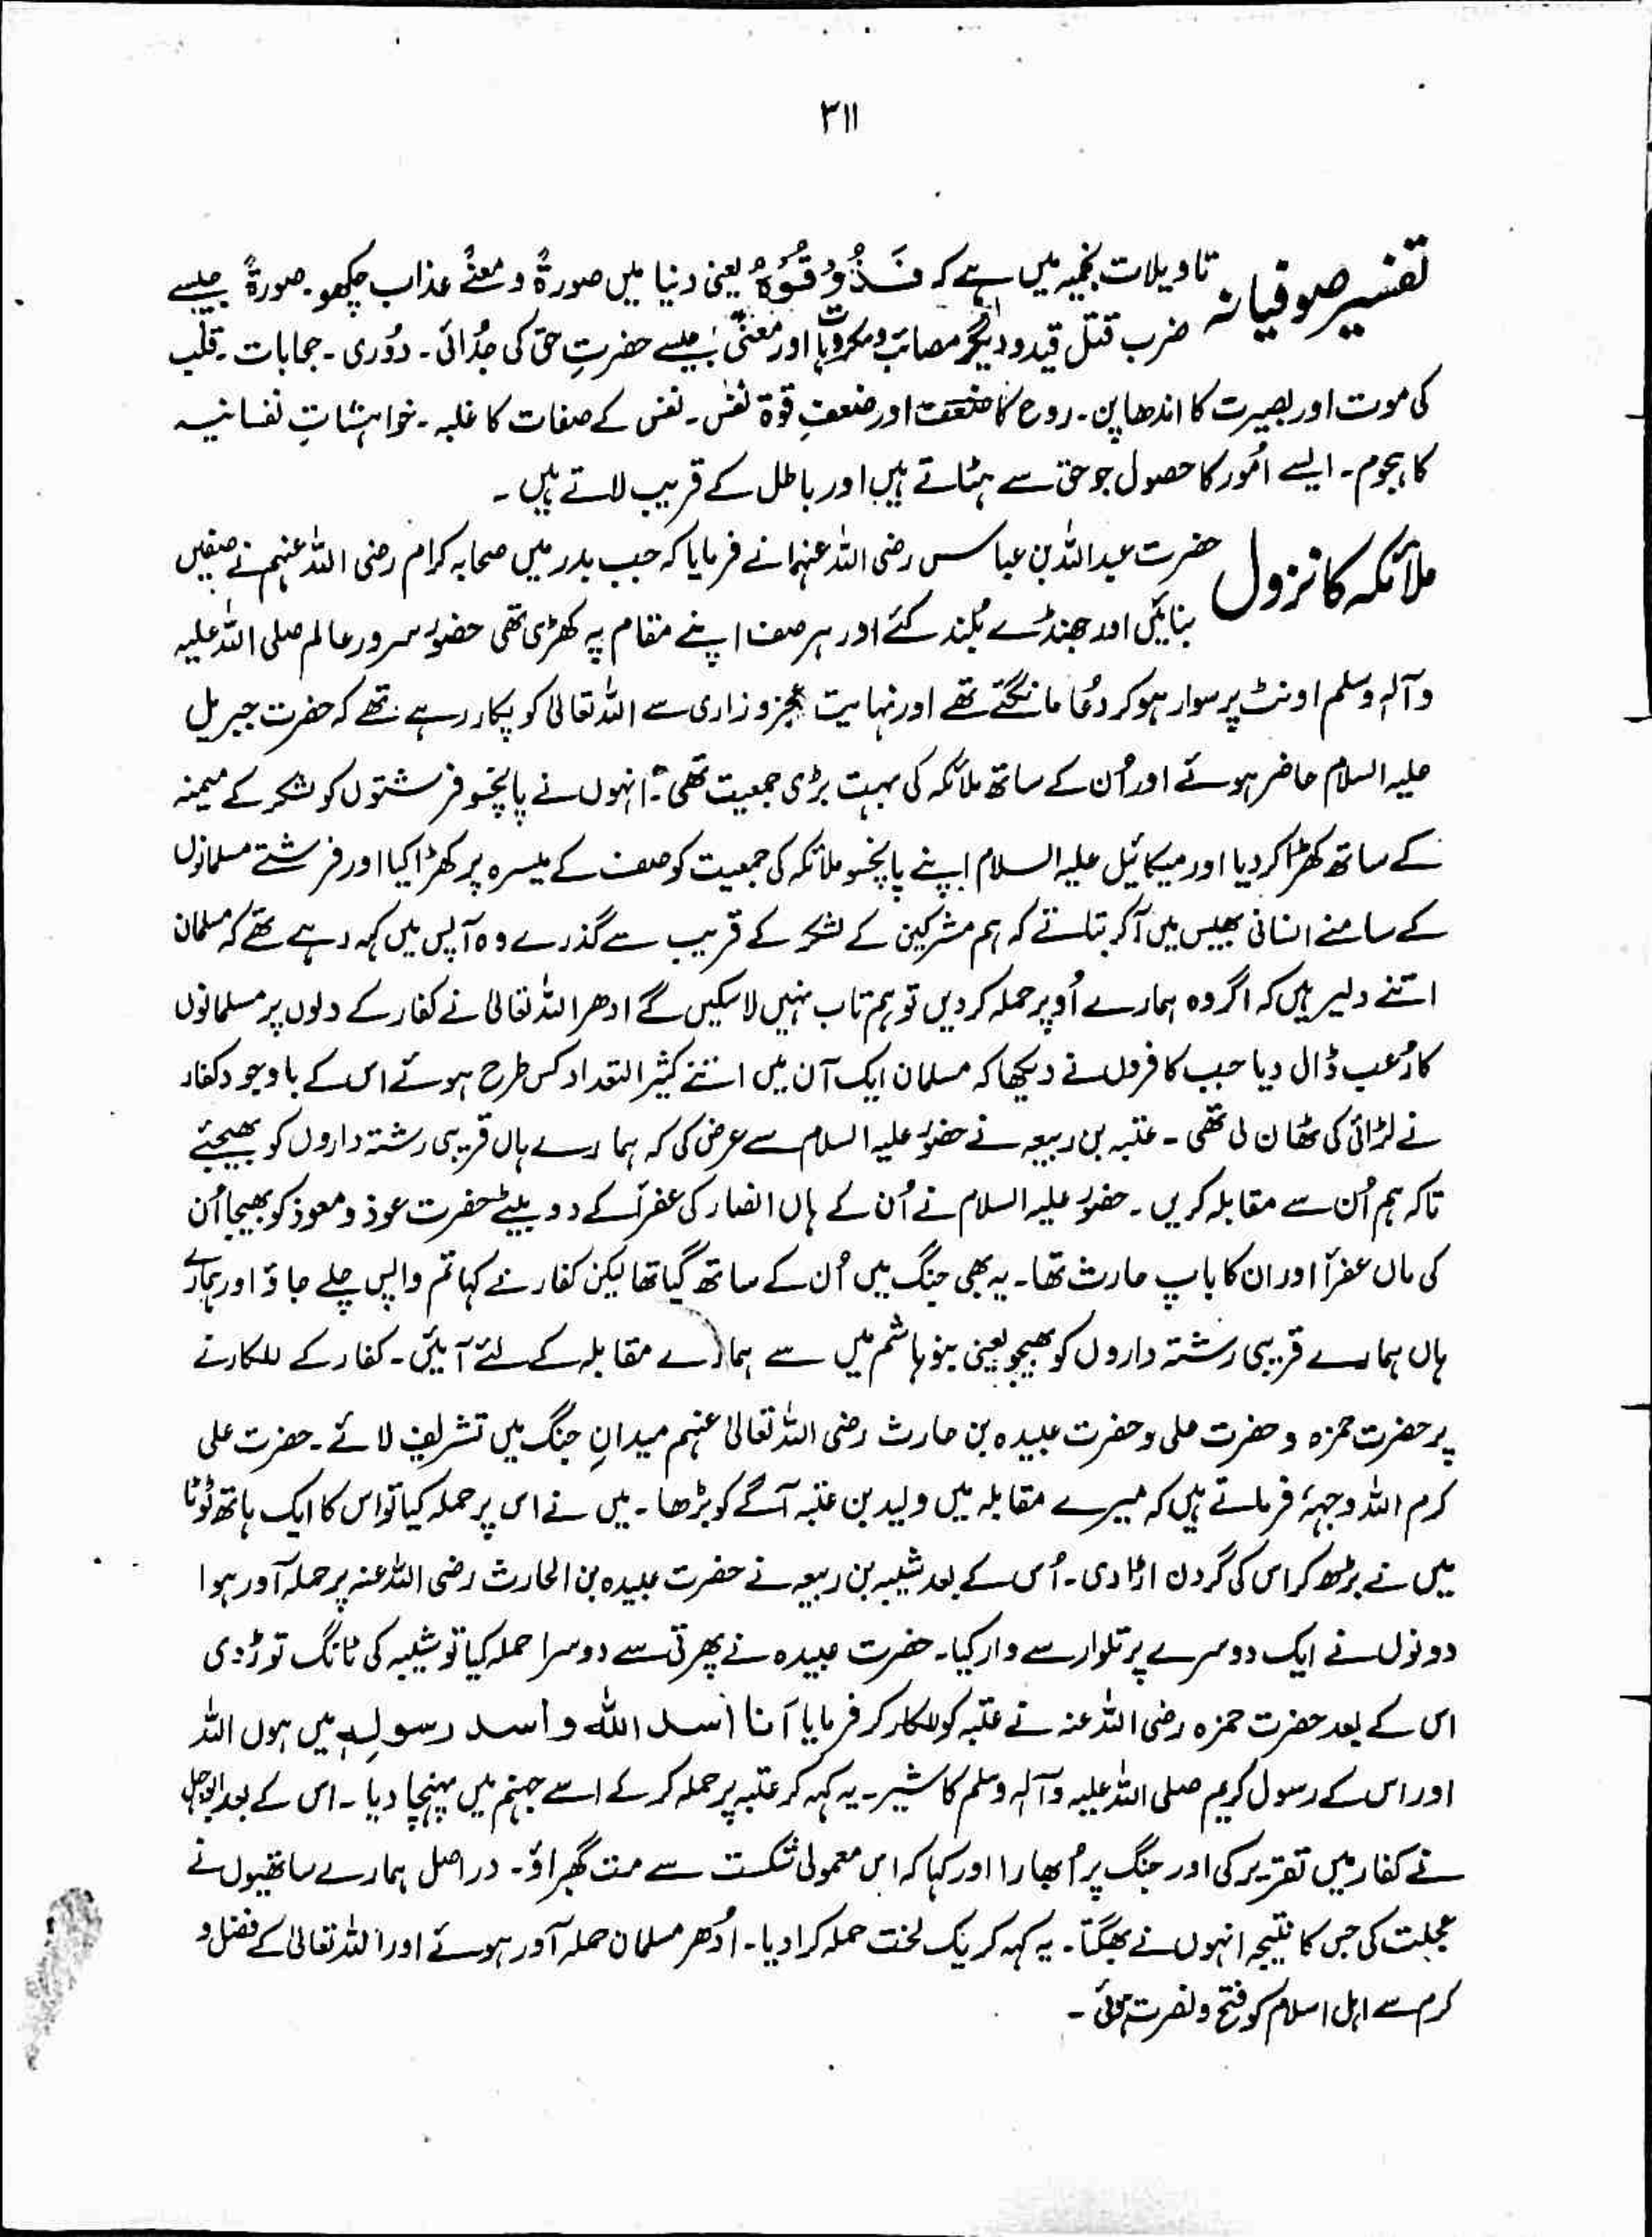 ۳۱۱
تفسیر صوفیانہ تاویلات نجمیہ میں ہے کہ فَذُوْقُوْہُ یعنی دنیا میں صورۃً و معنےً عذاب چکھو۔ صورۃً جیسے
ضرب قتل قید و دیگر مصائب و مکروہات اور معنًی جیسے حضرتِ حق کی جُدائی۔ دوری۔ حجابات۔ قلب
کی موت اور بصیرت کا اندھا پن۔ روح کا ضعف اور ضعفِ قوۃ نفس۔ نفس کے صفات کا غلبہ۔ خواہشاتِ نفسانیہ
کا ہجوم۔ ایسے امُور کا حصول جو حق سے ہٹاتے ہیں اور باطل کے قریب لاتے ہیں۔
ملائکہ کا نزول حضرت عبداللہ بن عباس رضی اللہ عنہما نے فرمایا کہ جب بدر میں صحابہ کرام رضی اللہ عنہم نے صفیں
بنائیں اور جھنڈے بلُند کئے اور ہر صف اپنے مقام پہ کھڑی تھی حضور سرور عالم صلی اللہ علیہ
وآلہٖ وسلم اونٹ پر سوار ہو کر دعُا مانگتے تھے اور نہایت عجز و زاری سے اللہ تعالیٰ کو پکار رہے تھے کہ حضرت جبریل
علیہ السلام حاضر ہوئے اور اُن کے ساتھ ملائکہ کی بہت بڑی جمعیت تھی۔ انہوں نے پانچسو فرشتوں کو لشکر کے میمنہ
کے ساتھ کھڑا کر دیا اور میکائیل علیہ السلام اپنے پانچسو ملائکہ کی جمعیت کو صف کے میسرہ پر کھڑا کیا اور فرشتے مسلمانوں
کے سامنے انسانی بھیس میں آ کر بتاتے کہ ہم مشرکین کے لشکر کے قریب سے گذرے وہ آپس میں کہہ رہے تھے کہ مسلمان
اتنے دلیر ہیں کہ اگر وہ ہمارے اُوپر حملہ کر دیں تو ہم تاب نہیں لا سکیں گے ادھر اللہ تعالیٰ نے کفار کے دلوں پر مسلمانوں
کا رُعب ڈال دیا جب کافروں نے دیکھا کہ مسلمان ایک آن میں اتنے کثیر التعداد کس طرح ہوئے اس کے باوجود کفار
نے لڑائی کی ٹھان لی تھی۔ عتبہ بن ربیعہ نے حضور علیہ السلام سے عرض کی کہ ہمارے ہاں قریبی رشتہ داروں کو بھیجئے
تاکہ ہم اُن سے مقابلہ کریں۔ حضور علیہ السلام نے اُن کے ہاں انصار کی عفرآ کے دو بیٹے حضرت عوذ و معوذ کو بھیجا اُن
کی ماں عفرآ اور ان کا باپ حارث تھا۔ یہ بھی جنگ میں اُن کے ساتھ گیا تھا لیکن کفار نے کہا تم واپس چلے جاؤ اور ہمارے
ہاں ہمارے قریبی رشتہ داروں کو بھیجو یعنی بنو ہاشم میں سے ہمارے مقابلہ کے لئے آئیں۔ کفار کے للکارنے
پر حضرت حمزہ و حضرت علی و حضرت عبیدہ بن حارث رضی اللہ تعالیٰ عنہم میدانِ جنگ میں تشریف لائے۔ حضرت علی
کرم اللہ وجہہٗ فرماتے ہیں کہ میرے مقابلہ میں ولید بن عتبہ آگے کو بڑھا۔ میں نے اس پر حملہ کیا تو اس کا ایک ہاتھ ٹوٹا
میں نے بڑھ کر اس کی گردن اڑا دی۔ اُس کے بعد شیبہ بن ربیعہ نے حضرت عبیدہ بن الحارث رضی اللہ عنہ پر حملہ آور ہوا
دونوں نے ایک دوسرے پر تلوار سے وار کیا۔ حضرت عبیدہ نے پھرتی سے دوسرا حملہ کیا تو شیبہ کی ٹانگ توڑ دی
اس کے بعد حضرت حمزہ رضی اللہ عنہ نے عتبہ کو للکار کر فرمایا اَنا اَسد اللّٰہ واَسد رسولِہٖ میں ہوں اللہ
اور اس کے رسول کریم صلی اللہ علیہ وآلہٖ وسلم کا شیر۔ یہ کہہ کر عتبہ پر حملہ کر کے اسے جہنم میں پہنچا دیا۔ اس کے بعد ابوجہل
نے کفار میں تقریر کی اور جنگ پر اُبھارا اور کہا کہ اس معمولی شکست سے مت گھبراؤ۔ در اصل ہمارے ساتھیوں نے
عجلت کی جس کا نتیجہ انہوں نے بھگتا۔ یہ کہہ کر یک لخت حملہ کرا دیا۔ ادُھر مسلمان حملہ آور ہوئے اور اللہ تعالیٰ کے فضل و
کرم سے اہل اسلام کو فتح و نصرت ہوئی۔